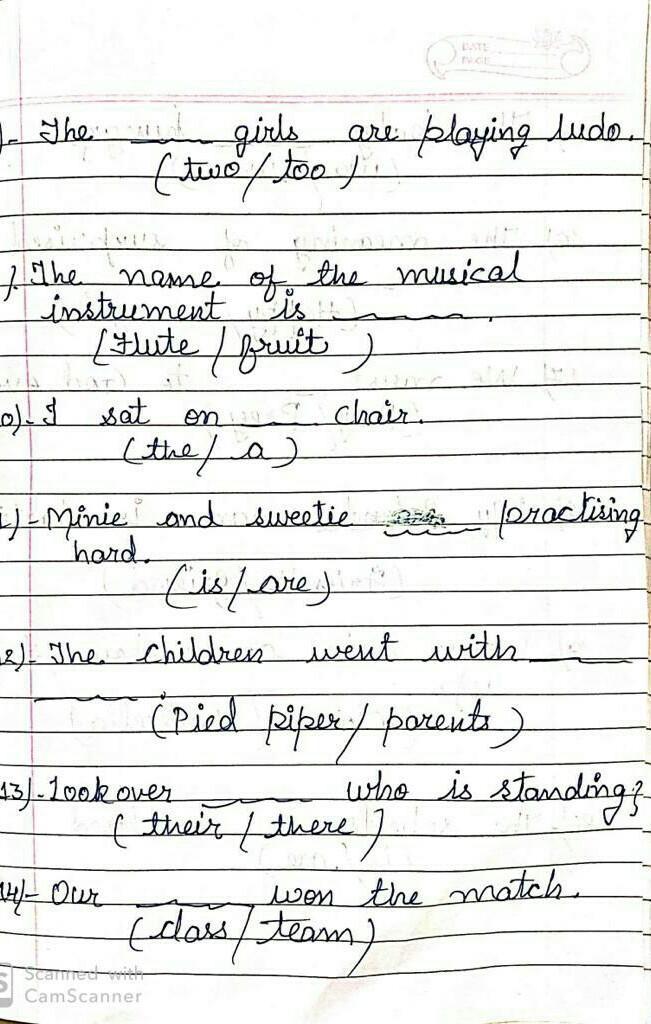 DATE
PAGE
)- The ____ girls are playing ludo.
(two/too)
). The name of the musical
instrument is ____.
(Flute / fruit)
0)- I sat on ____ chair.
(the/ a)
1)- Minie and sweetie ____ practising
hard.
(is/are)
2)- The children went with ____
____.
(Pied piper/ parents)
13)- Look over ____ who is standing?
(their / there)
14)- Our ____ won the match.
(class/team)
Scanned with
CamScanner